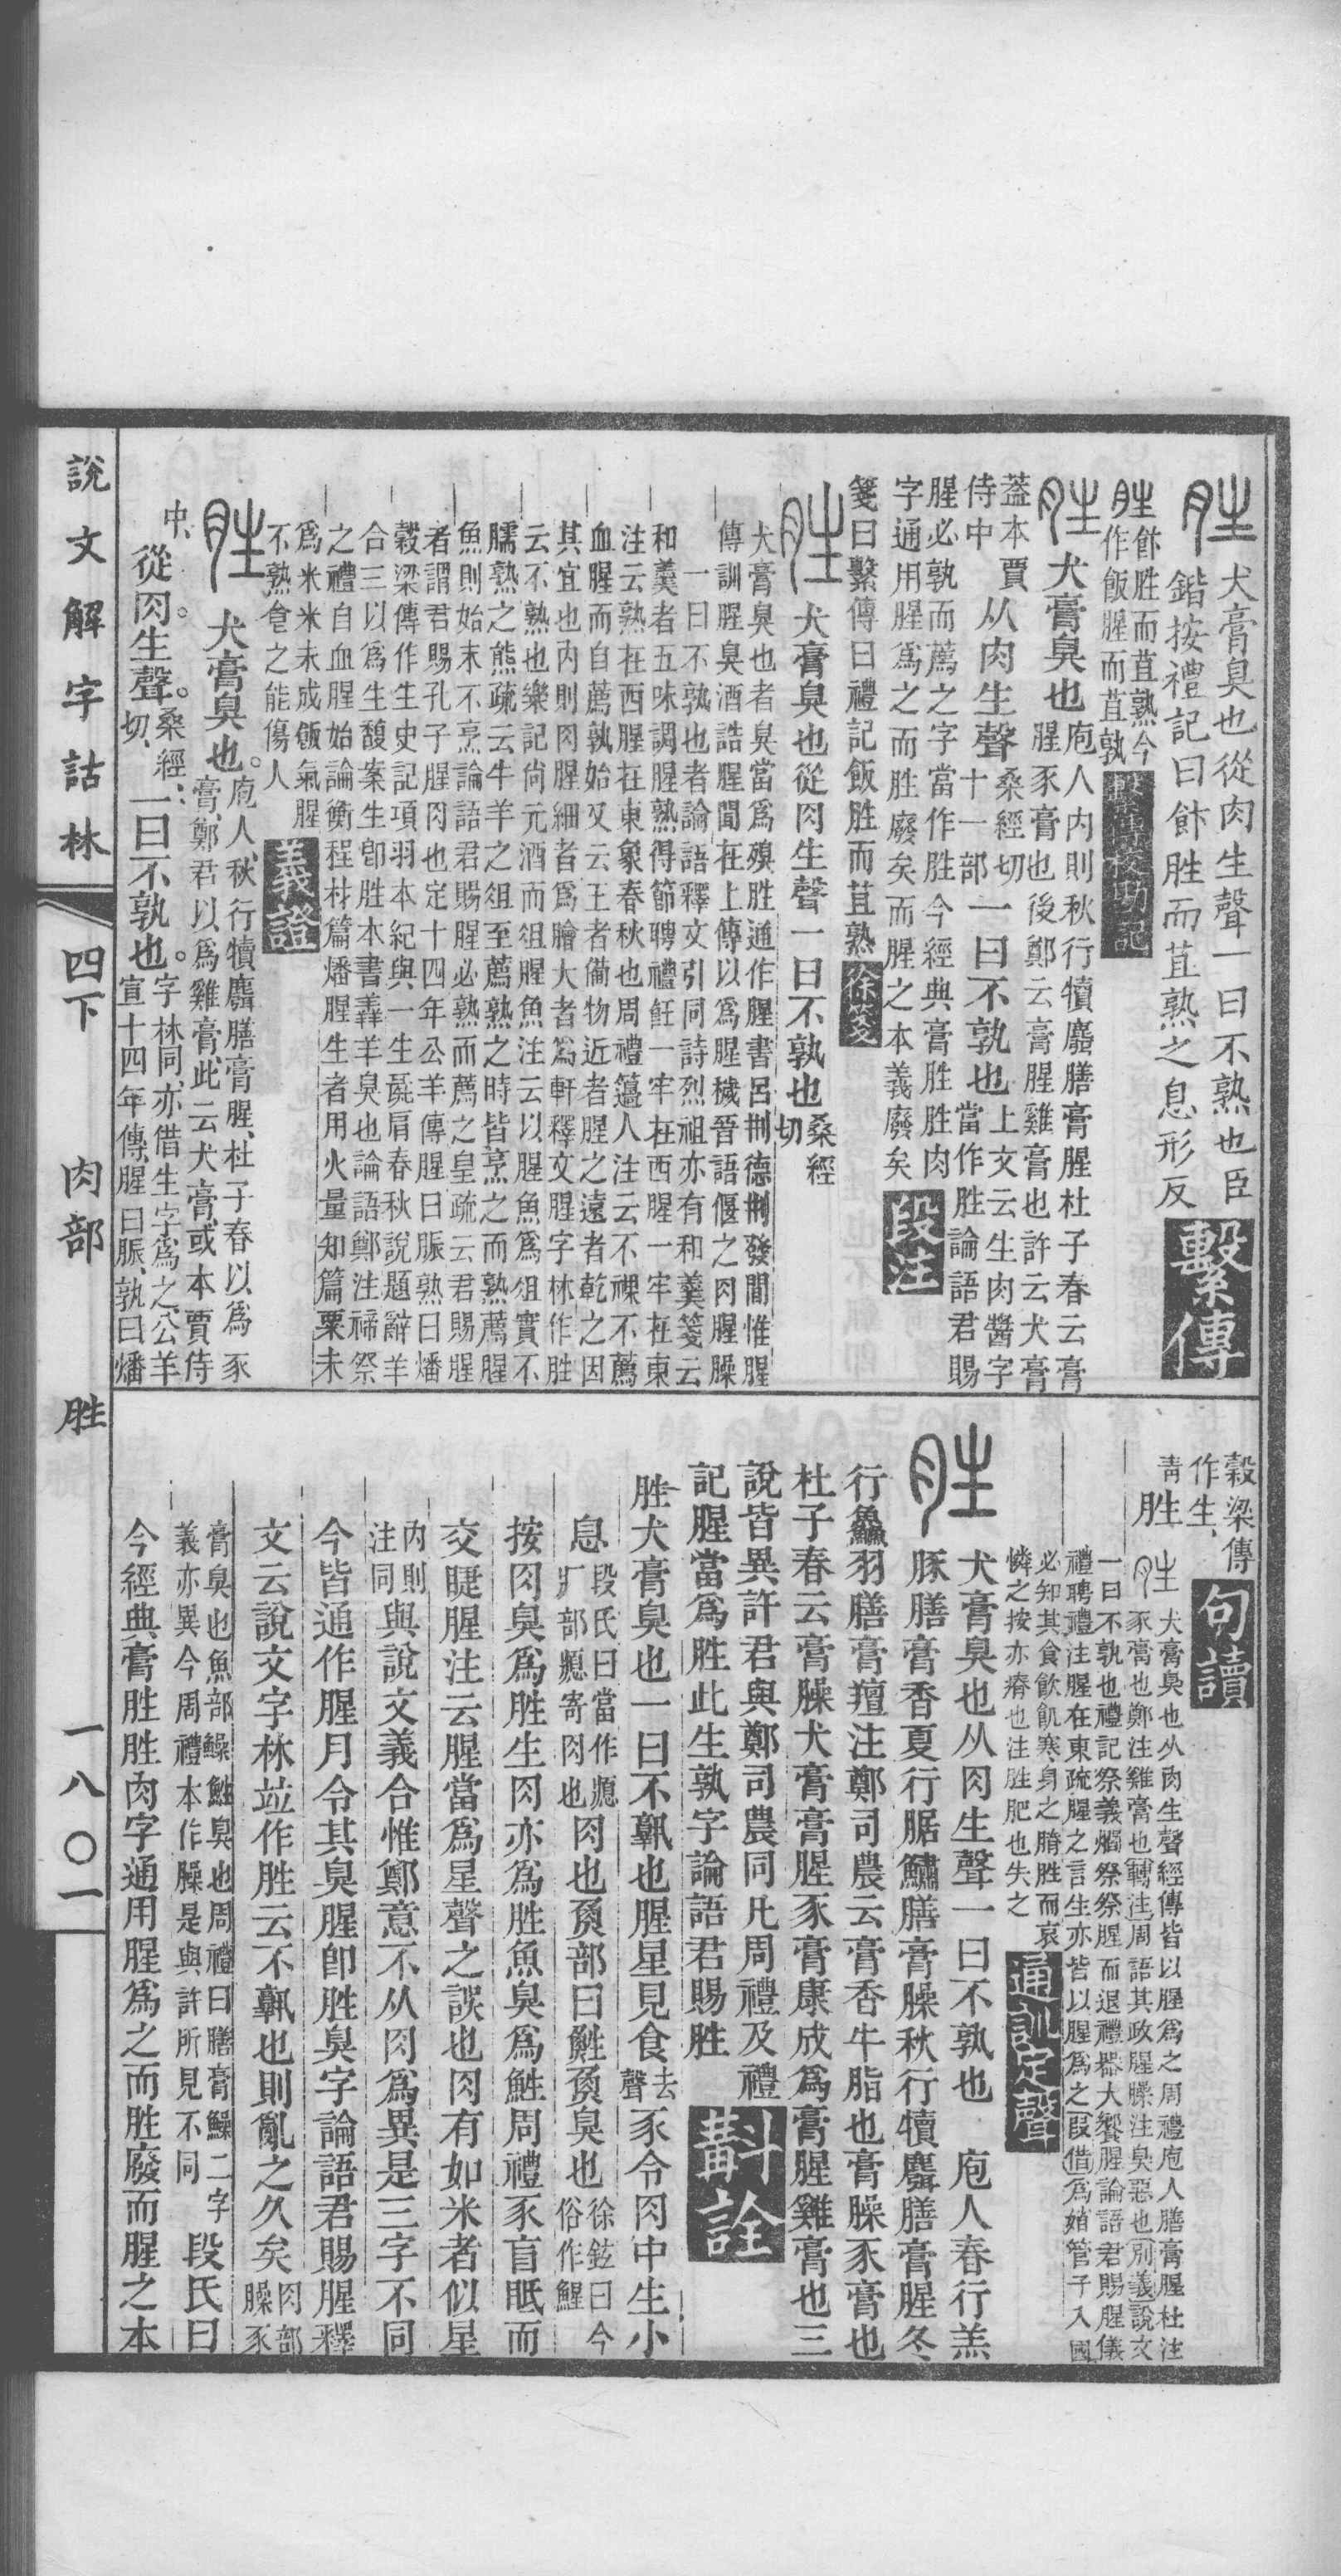 犬膏臭也從肉生聲一曰不熟也臣
鍇按禮記曰飰胜而苴熟之息形反
繫傳
胜飰胜而苴熟今
作飯腥而苴孰
繫傳校勘記
犬膏臭也
庖人內則秋行犢麛膳膏腥杜子春云膏
腥豕膏也後鄭云膏腥雞膏也許云犬膏
蓋本賈
侍中
从肉生聲
桑經切
十一部
一曰不孰也
上文云生肉醬字
當作胜論語君賜
腥必孰而薦之字當作胜今經典膏胜胜肉
字通用腥爲之而胜廢矣而腥之本義廢矣
段注
箋曰繫傳曰禮記飯胜而苴熟
徐箋
犬膏臭也從肉生聲一曰不孰也
桑經
切
犬膏臭也者臭當爲殠胜通作腥書呂刑德刑發聞惟腥
傳訓腥臭酒誥腥聞在上傳以爲腥穢晉語偃之肉腥臊
一曰不孰也者論語釋文引同詩烈祖亦有和羹箋云
和羹者五味調腥熟得節聘禮飪一牢在西腥一牢在東
注云熟在西腥在東象春秋也周禮籩人注云不祼不薦
血腥而自薦孰始又云王者備物近者腥之遠者乾之因
其宜也內則肉腥細者爲膾大者爲軒釋文腥字林作胜
云不熟也樂記尙元酒而俎腥魚注云以腥魚爲俎實不
臑熟之熊疏云牛羊之俎至薦熟之時皆亨之而熟薦腥
魚則始末不烹論語君賜腥必熟而薦之皇疏云君賜腥
者謂君賜孔子腥肉也定十四年公羊傳腥曰脤熟曰燔
穀梁傳作生史記項羽本紀與一生彘肩春秋說題辭羊
合三以爲生馥案生卽胜本書羴羊臭也論語鄭注禘祭
之禮自血腥始論衡程材篇燔腥生者用火量知篇粟未
爲米米未成飯氣腥
不熟食之能傷人
義證
犬膏臭也。
庖人、秋行犢麛膳膏腥、杜子春以爲豕
膏、鄭君以爲雞膏、此云犬膏、或本賈侍
中、
從肉。生聲。
桑經、
切、
一曰不孰也。
字林同、亦借生字爲之、公羊
宣十四年傳、腥曰脤、孰曰燔
說文解字詁林
四下
肉部
胜
一八〇一
穀梁傳
作生、
句讀
靑
胜
犬膏臭也从肉生聲經傳皆以腥爲之周禮庖人膳膏腥杜注
豕膏也鄭注雞膏也轉注周語其政腥臊注臭惡也別義說文
一曰不孰也禮記祭義爓祭祭腥而退禮器大饗腥論語君賜腥儀
禮聘禮注腥在東疏腥之言生亦皆以腥爲之叚借爲㾪管子入國
必知其食飲飢寒身之膌胜而哀
憐之按亦瘠也注胜肥也失之
通訓定聲
犬膏臭也从肉生聲一曰不孰也　庖人春行羔
豚膳膏香夏行腒鱐膳膏臊秋行犢麛膳膏腥冬
行鱻羽膳膏羶注鄭司農云膏香牛脂也膏臊豕膏也
杜子春云膏臊犬膏膏腥豕膏康成爲膏腥雞膏也三
說皆異許君與鄭司農同凡周禮及禮
記腥當爲胜此生孰字論語君賜胜
斠詮
胜犬膏臭也一曰不孰也腥星見食
去
聲
豕令肉中生小
息
段氏曰當作瘜
疒部瘜寄肉也
肉也魚部曰鮏魚臭也
徐鉉曰今
俗作鯹
按肉臭爲胜生肉亦爲胜魚臭爲鮏周禮豕盲眡而
交睫腥注云腥當爲星聲之誤也肉有如米者似星
內則
注同
與說文義合惟鄭意不从肉爲異是三字不同
今皆通作腥月令其臭腥卽胜臭字論語君賜腥釋
文云說文字林竝作胜云不孰也則亂之久矣
肉部
臊豕
膏臭也魚部鱢鮏臭也周禮曰膳膏鱢二字
義亦異今周禮本作臊是與許所見不同
段氏曰
今經典膏胜胜肉字通用腥爲之而胜廢而腥之本